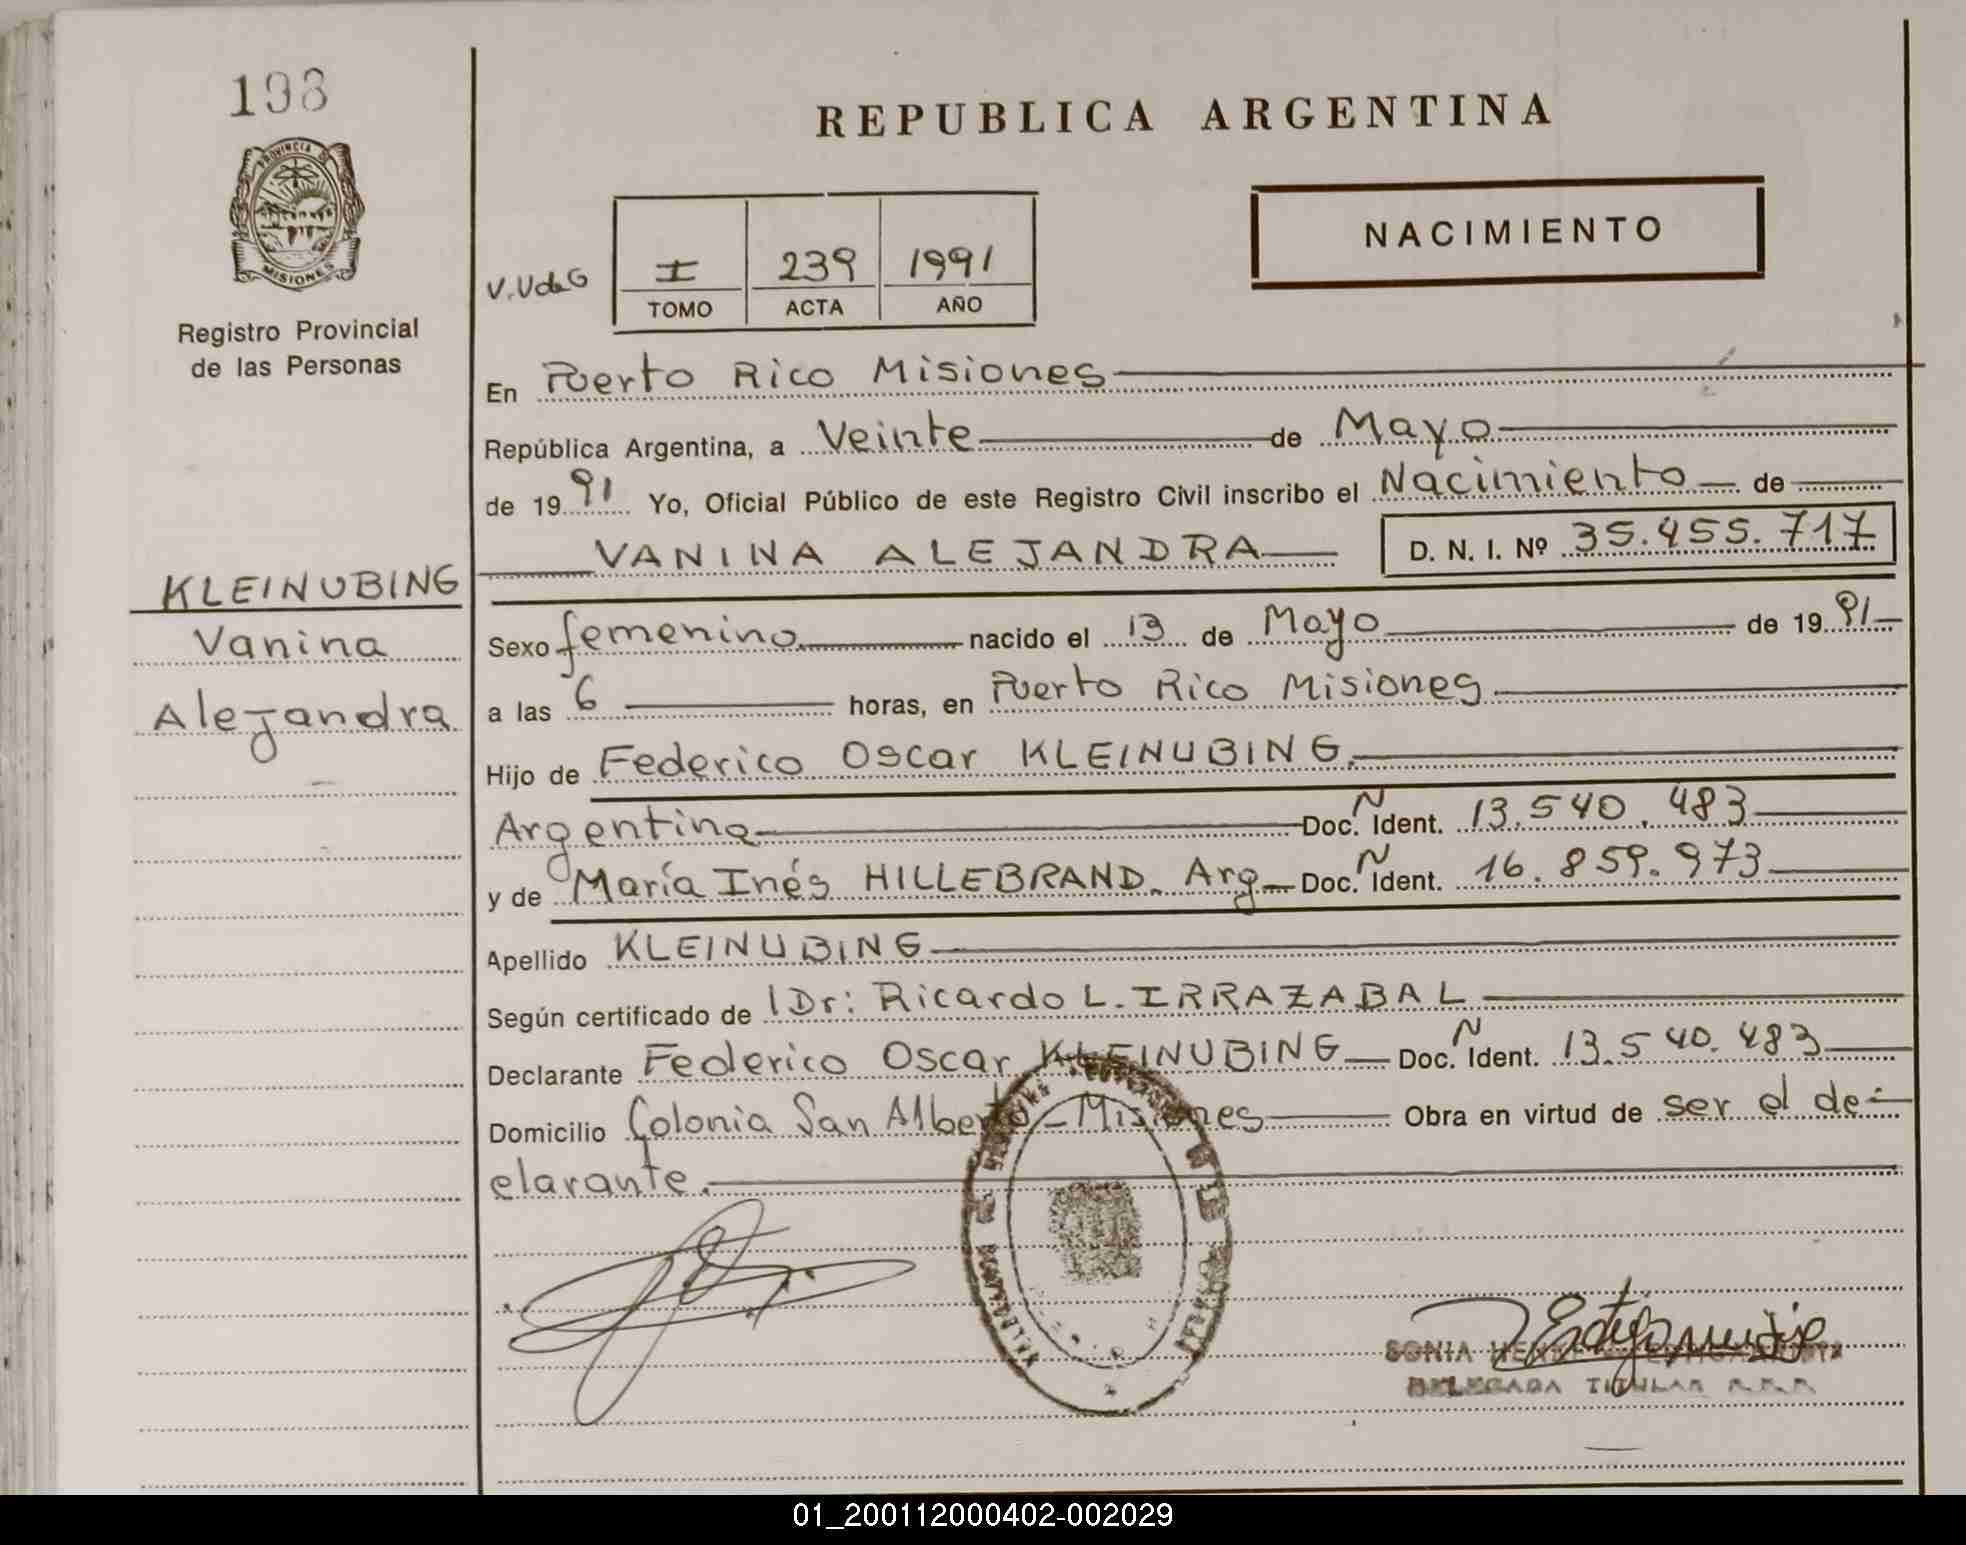 198
PROVINCIA DE
MISIONES
Registro Provincial
de las Personas
KLEINUBING
Vanina
Alejandra
REPUBLICA ARGENTINA
NACIMIENTO
V.UdeG
I 239 1991
TOMO ACTA AÑO
En Puerto Rico Misiones
República Argentina, a Veinte de Mayo
de 1991 Yo, Oficial Público de este Registro Civil inscribo el Nacimiento de
VANINA ALEJANDRA D. N. I. Nº 35.455.717
Sexo femenino nacido el 13 de Mayo de 1991
a las 6 horas, en Puerto Rico Misiones
Hijo de Federico Oscar KLEINUBING.
Argentina Doc. Ñ Ident. 13.540.483
y de María Inés HILLEBRAND. Arg Doc. Ñ Ident. 16.859.973
Apellido KLEINUBING
Según certificado de Dr: Ricardo L. IRRAZABAL
Declarante Federico Oscar KLEINUBING Doc. Ñ Ident. 13.540.483
Domicilio Colonia San Alberto - Misiones Obra en virtud de ser el de-
clarante.
SONIA
DELEGADA TITULAR
01_200112000402-002029